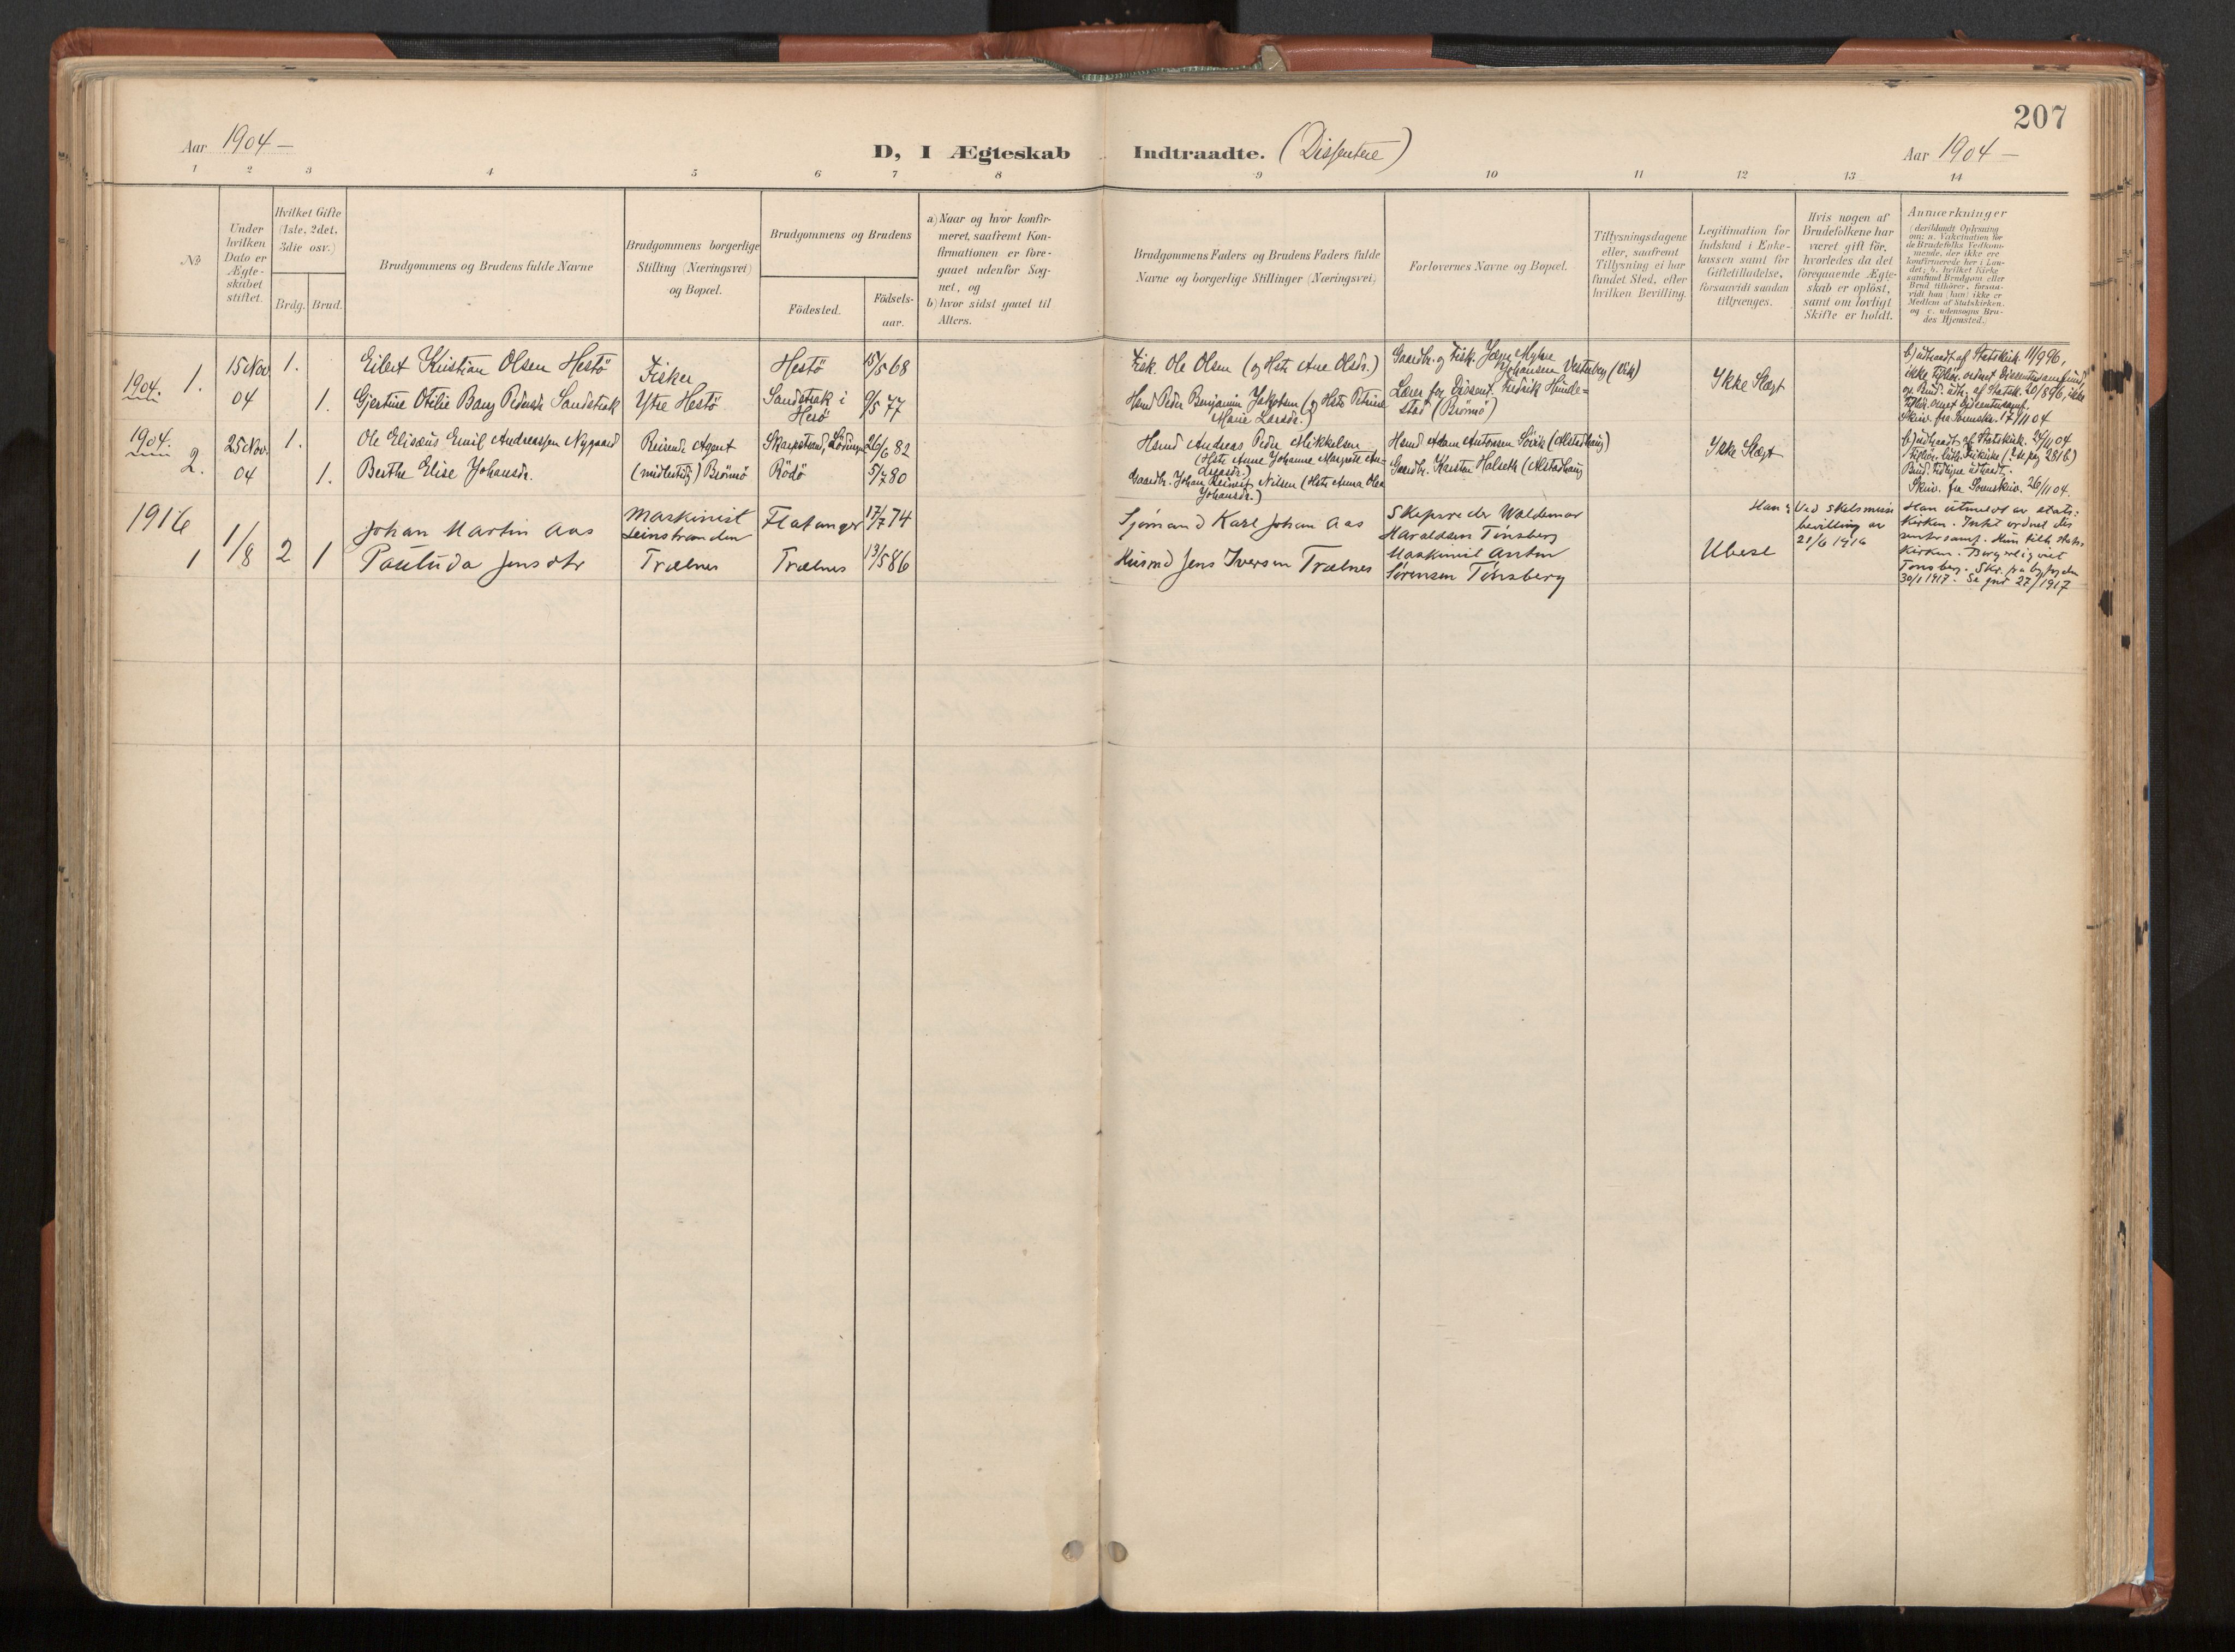 207
Aar 1904 –
D, I Ægteskab Indtraadte. (Dissentere)
Aar 1904 –
1 2 3 4 5 6 7 8 9 10 11 12 13 14
No
Under
hvilken
Dato er
Ægte-
skabet
stiftet.
Hvilket Gifte
(1ste, 2det,
3die osv.)
Brdg. Brud.
Brudgommens og Brudens fulde Navne
Brudgommens borgerlige
Stilling (Næringsvei)
og Bopæl.
Brudgommens og Brudens
Födested.
Födsels-
aar.
a) Naar og hvor konfir-
meret, saafremt Kon-
firmationen er fore-
gaaet udenfor Sog-
net, og
b) hvor sidst gaaet til
Alters.
Brudgommens Faders og Brudens Faders fulde
Navne og borgerlige Stillinger (Næringsvei)
Forlovernes Navne og Bopæl.
Tillysningsdagene
eller, saafremt
Tillysning ei har
fundet Sted, efter
hvilken Bevilling.
Legitimation for
Indskud i Enke-
kassen samt for
Giftetilladelse,
forsaavidt saadan
tiltrænges.
Hvis nogen af
Brudefolkene har
været gift för,
hvorledes da det
foregaaende Ægte-
skab er oplöst,
samt om lovligt
Skifte er holdt.
Anmærkninger
(deriblandt Oplysning
om: a. Vakcination for
de Brudefolks Vedkom-
mende, der ikke ere
konfirmerede her i Lan-
det; b. hvilket Kirke-
samfund Brudgom eller
Brud tilhörer, forsaa-
vidt han (hun) ikke er
Medlem af Statskirken,
og c. udensogns Bru-
des Hjemsted.
1904. 1.
15 Nov
04
1.
1.
Eilert Kristian Olsen Hestö
Gjertine Otilie Bang Pedersdr Sandstrak
Fisker
Ytre Hestö
Hestö
Sandstrak i
Herö
15/5 68
9/5 77
Fisk. Ole Olsen (og Hstr Ane Olsdr.)
Hsmd Peder Benjamin Jakobsen (og Hstr Petrine
Marie Larsdr.)
Gaardbr. og Fisk.
Johansen Vesterberg (Vik)
Lærer for Dissent. Fredrik Hunde-
stad (Brönnö)
Ikke Slægt
b) udtraadt af Statskirk. 11/9 96,
ikke tilhör. ordnet Dissentersamfund,
og Brud. udtr. af Statsk. 20/8 96, ikke
tilhör. ordnet Dissentersamf.
Skriv. fra 17/11 04
1904. 2.
25 Nov.
04
1.
1.
Ole Elisæus Emil Andreassen Nygaard
Berthe Elise Johansdr.
Reisende Agent
(midlertidig) Brönnö
Rödö
26/6 82
5/7 80
Hsmd Andreas Peder Mikkelsen
(Hstr Anne Johanne Margrete An-
dreasdr.)
Gaardbr. Johan Nilsen (Hstr Anna Olea
Johansdr.)
Hsmd Adam Antonsen Sövik (Alstadhaug)
Gaardbr. Karsten Halseth (Alstadhaug
Ikke Slægt
b) udtraadt af Statskirk. 24/11 04
Tilhör. luth. Frikirke
Brud. tidligere udtraadt.
Skriv. fra 26/11 04.
1916
1
1/8
2
1
Johan Martin Aas
Pauluda Jensdtr
Maskinist
Leinstranden
Trælnes
Flatanger
Trælnes
17/7 74
13/5 86
Sjømand Karl Johan Aas
Husmd Jens Iversen Trælnes
Skipsreder Waldemar
Haraldsen Tønsberg
Maskinist Anton
Sørensen Tønsberg
Ubesl
Han: Ved skilsmisse
bevilling av
21/6 1916
Han utmeldt av stats-
kirken. Intet ordnet dis
sentersamf. Hun tilh. stats
kirken. Borgerlig viet
Tønsberg. Skr. fra byfogden
30/1 1917. Se jnr 27/1917